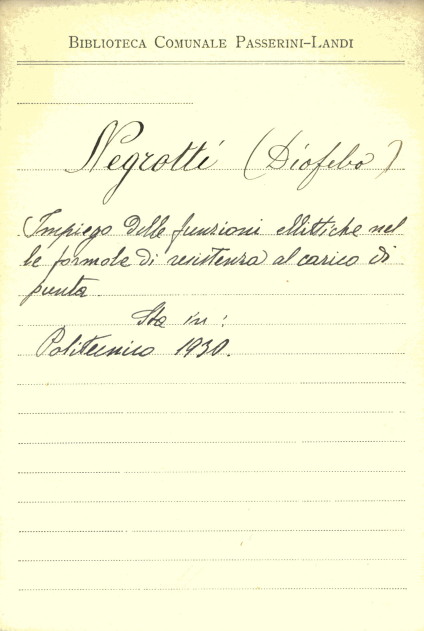 BIBLIOTECA COMUNALE PASSERINI-LANDI
Negrotti (Diofebo)
Impiego delle funzioni ellittiche nel
le formole di resistenza al carico di
punta.
Sta in:
Politecnico 1930.